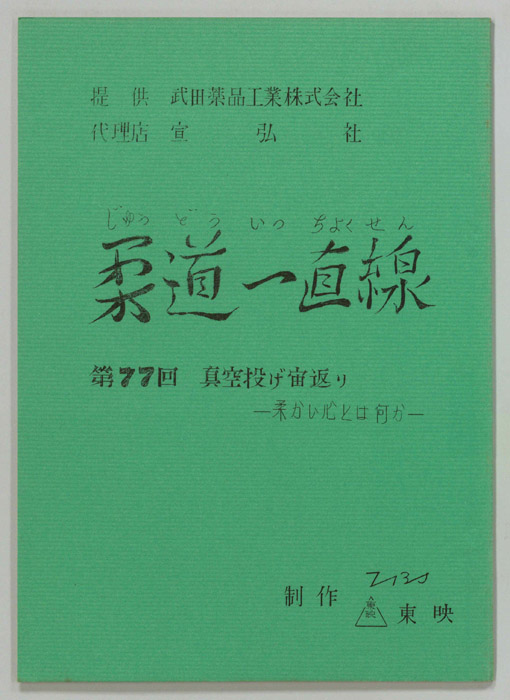 提 供 武田薬品工業株式会社
代理店 宣 弘 社
じゅう どう いっ ちよく せん
柔道一直線
第77回 真空投げ宙返り
―柔かい心とは何か―
TBS
制作 東映 東映